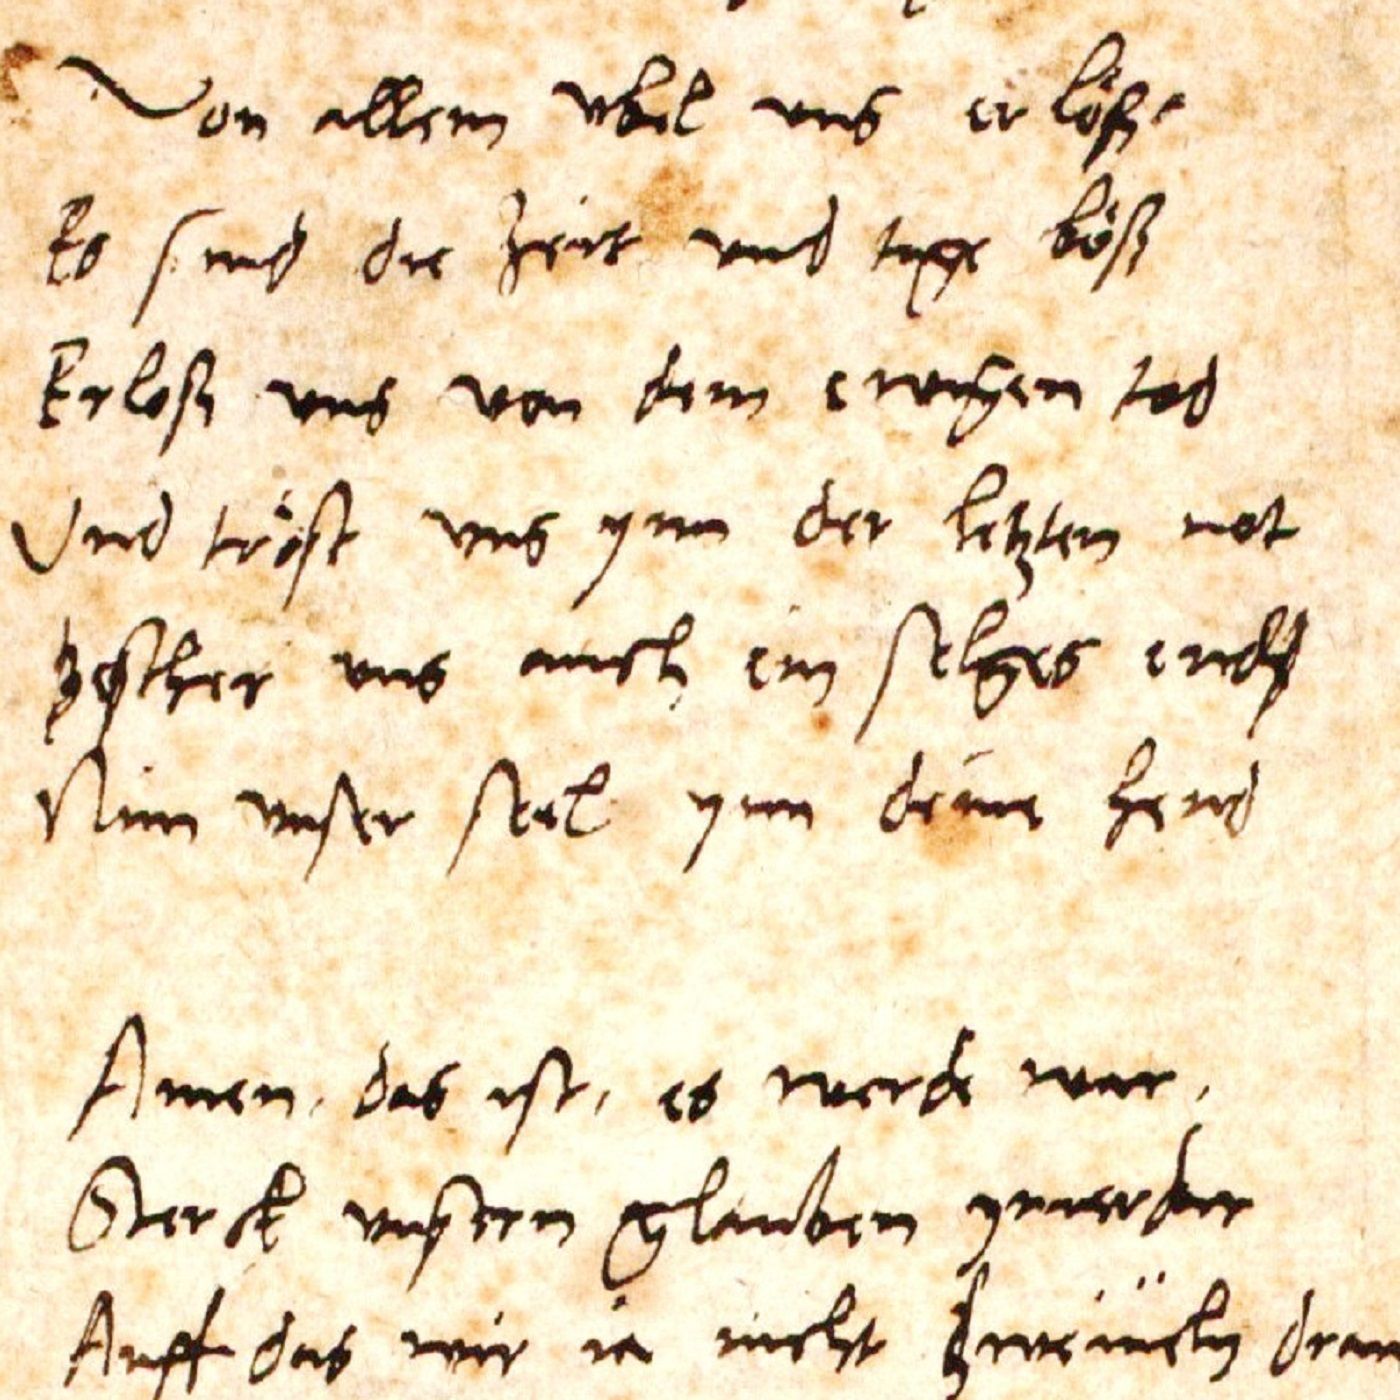 Von allem vbel vns erlöß
Es sind die zeit vnd tage böß
Erloß vns von dem ewigen tod
Vnd tröst vns ynn der letzten not
vns auch ein selges end
Nim vnser seel ynn deine hend
Amen, das ist, es werde war,
Sterck vnsern glauben ymerdar
Auff das wir ia nicht dran